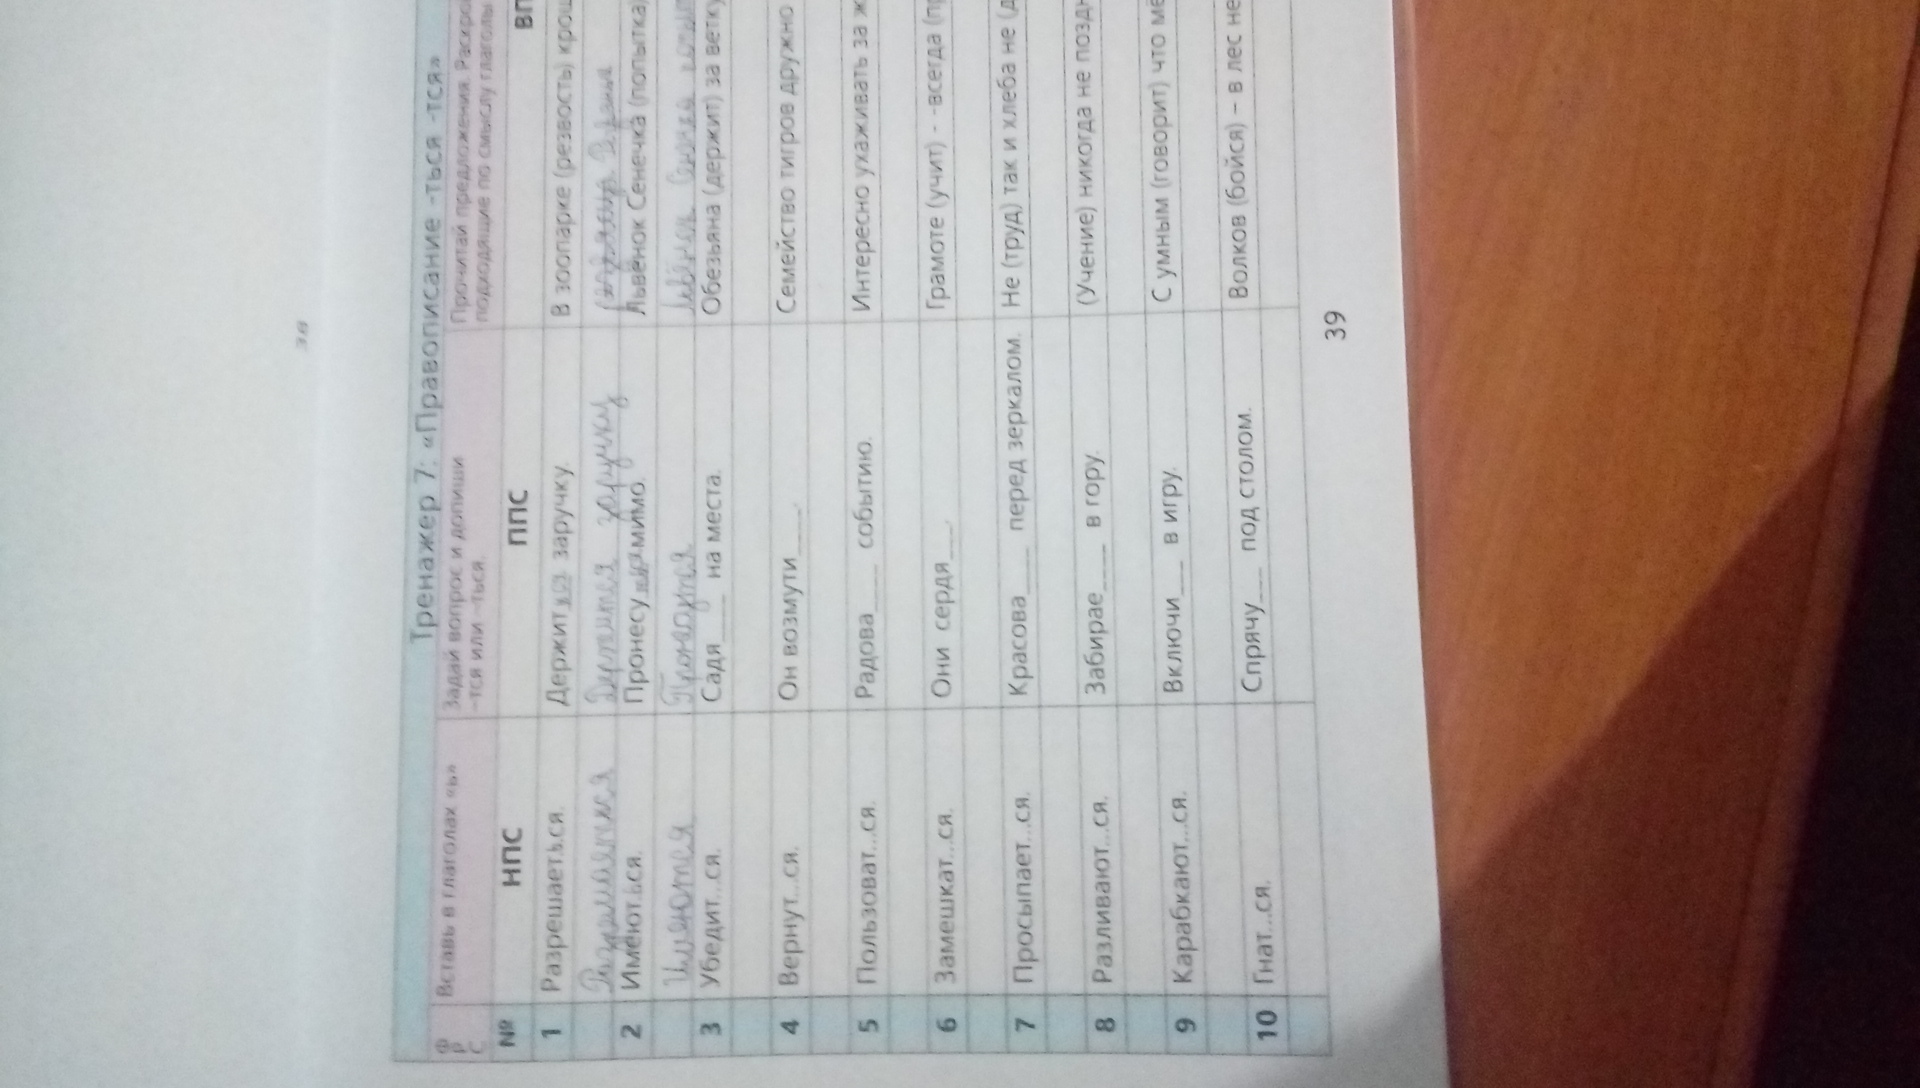 38
Тренажер 7: «Правописание -ться -тся»
Ф Р С
Вставь в глаголах «ь»
Задай вопрос и допиши -тся или -ться.
Прочитай предложения. Раскрой
подходящие по смыслу глаголы
№ НПС ППС ВП
1 Разрешает.ь.ся. Держит заручку. В зоопарке (резвость) крош
Держится заручку
2 Имеют.ь.ся. Пронесу мимо. Львёнок Сенечка (попытка)
Имеются
3 Убедит...ся. Садя___ на места. Обезьяна (держит) за ветку
4 Вернут...ся. Он возмути___. Семейство тигров дружно
5 Пользоват...ся. Радова___ событию. Интересно ухаживать за ж
6 Замешкат...ся. Они сердя___. Грамоте (учит) - -всегда (пр
7 Просыпает...ся. Красова___ перед зеркалом. Не (труд) так и хлеба не (д
8 Разливают...ся. Забирае___ в гору. (Учение) никогда не поздн
9 Карабкают...ся. Включи___ в игру. С умным (говорит) что мё
10 Гнат...ся. Спрячу___ под столом. Волков (бойся) – в лес не
39